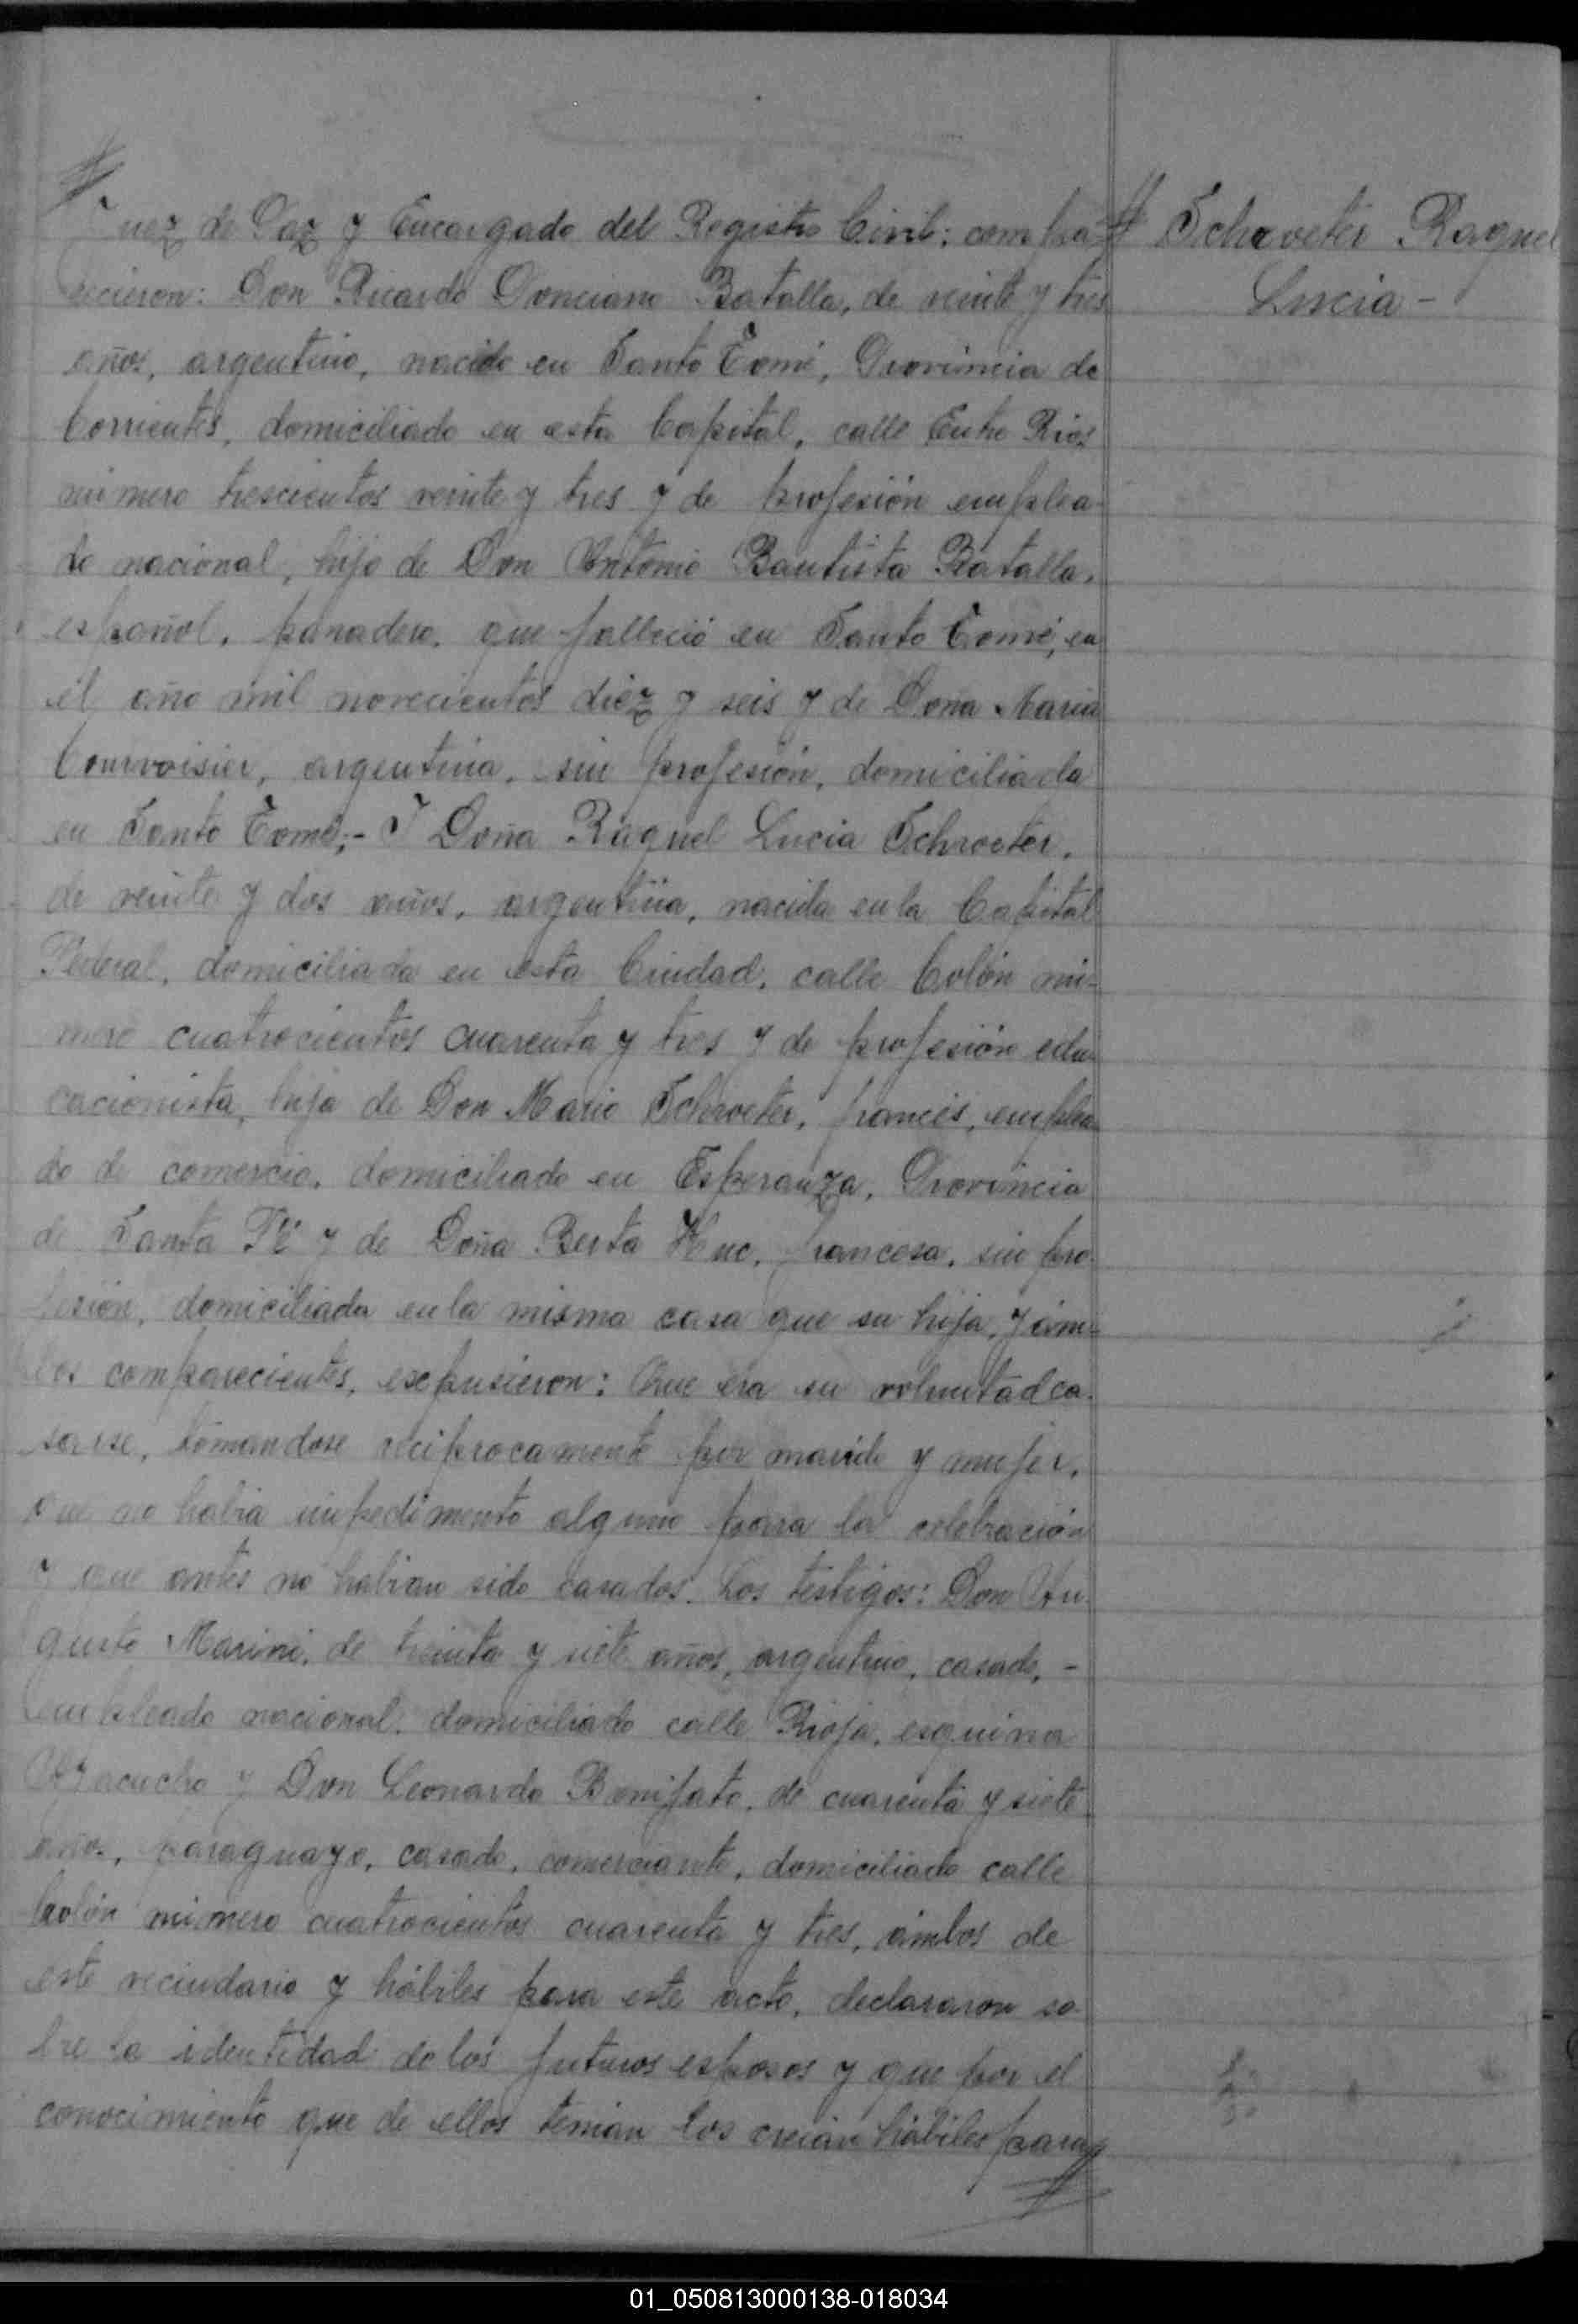 Juez de Paz y Encargado del Registro Civil: compa-
recieron: Don Ricardo Ponciano Batalla, de veinte y tres
años, argentino, nacido en Santo Tomé, Provincia de
Corrientes, domiciliado en esta Capital, calle Entre Rios
número trescientos veinte y tres y de profesión emplea-
do nacional, hijo de Don Antonio Bautista Batalla,
español, panadero, que falleció en Santo Tomé, en
el año mil novecientos diez y seis y de Doña Maria
Courvoisier, argentina, sin profesión, domiciliada
en Santo Tomé;- Y Doña Raquel Lucia Schroeter,
de veinte y dos años, argentina, nacida en la Capital
Federal, domiciliada en esta Ciudad, calle Colón nú-
mero cuatrocientos cuarenta y tres y de profesión edu-
cacionista, hija de Don Mario Schroeter, francés, emplea-
do de comercio, domiciliado en Esperanza, Provincia
de Santa Fé y de Doña Berta Huc, francesa, sin pro-
fesión, domiciliada en la misma casa que su hija, y ám-
bos comparecientes, expusieron: Que era su voluntad ca-
sarse, tomandose reciprocamente por marido y mujer,
que no habia impedimento alguno para la celebración
y que antes no habian sido casados. Los testigos: Don Au-
gusto Marini, de treinta y siete años, argentino, casado, -
empleado nacional, domiciliado calle Rioja, esquina
Ayacucho y Don Leonardo Bonifato, de cuarenta y siete
años, paraguayo, casado, comerciante, domiciliado calle
Colón número cuatrocientos cuarenta y tres, ámbos de
este vecindario y hábiles para este acto, declararon so-
bre la identidad de los futuros esposos y que por el
conocimiento que de ellos tenian los creian hábiles para
Schroeter Raquel
Lucia -
01_050813000138-018034